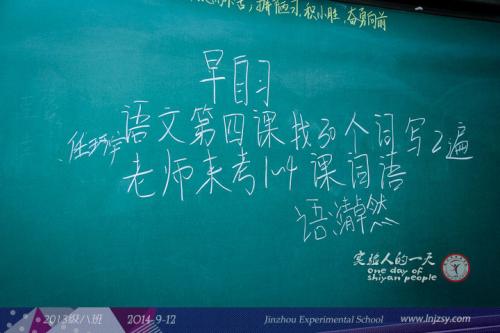 积小胜,奋勇向前
早自习
语文第四课找30个词写2遍
老师来考1-4课词语
语:清卓然
实验人的一天
one day of
shiyan people
2013级八班 2014-9-12 Jinzhou Experimental School www.lnjzsy.com